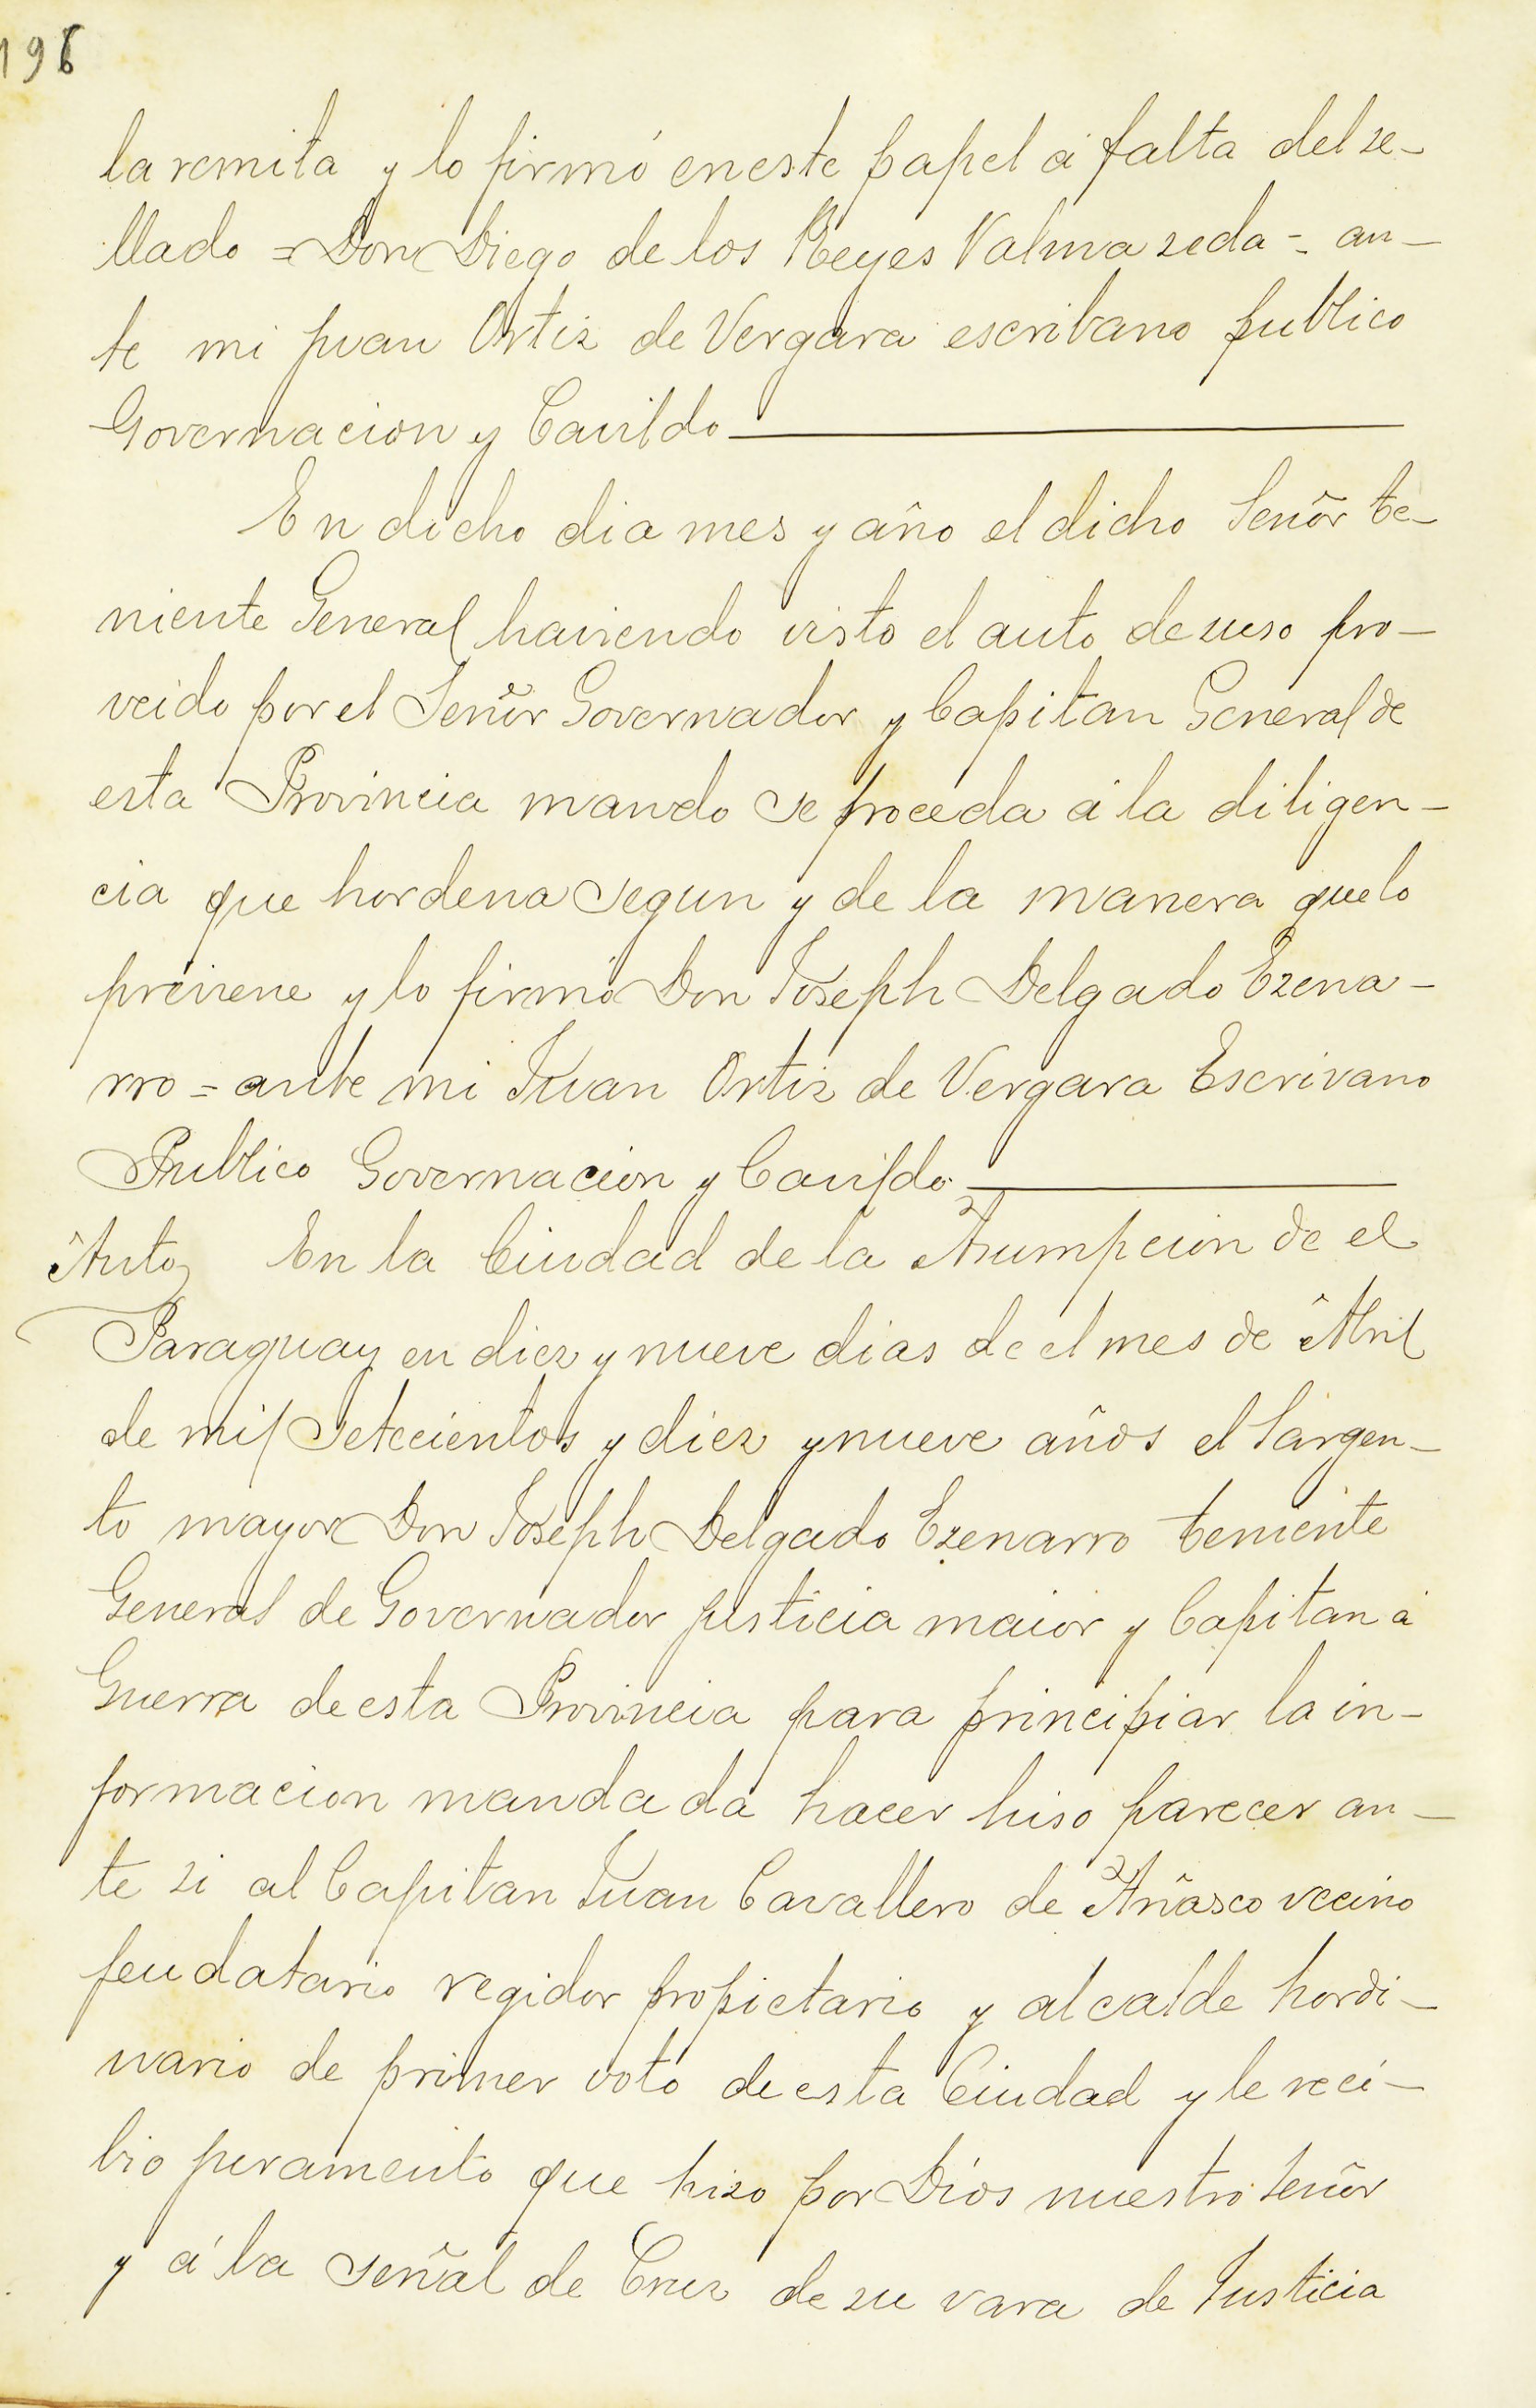 196
la remita y lo firmó en este papel á falta del se-
llado = Don Diego de los Reyes Valmazeda = an-
te mi Juan Ortiz de Vergara escribano publico
Governacion y Cavildo
En dicho dia mes y año el dicho Señor te-
niente General haviendo visto el auto de suso pro-
veido por el Señor Governador y Capitan General de
esta Provincia mando se proceda á la diligen-
cia que hordena segun y de la manera que lo
previene y lo firmó Don Joseph Delgado Ezena-
rro = ante mi Juan Ortiz de Vergara Escrivano
Publico Governacion y Cavildo
Auto En la Ciudad de la Asumpcion de el
Paraguay en diez y nueve dias de el mes de Abril
de mil Setecientos y diez y nueve años el Sargen-
to mayor Don Joseph Delgado Ezenarro teniente
General de Governador justicia maior y Capitan á
Guerra de esta Provincia para principiar la in-
formacion mandada hacer hiso parecer an-
te si al Capitan Juan Cavallero de Añasco vecino
feudatario regidor propietario y alcalde hordi-
nario de primer voto de esta Ciudad y le reci-
bio juramento que hizo por Dios nuestro señor
y á la señal de Cruz de su vara de Justicia